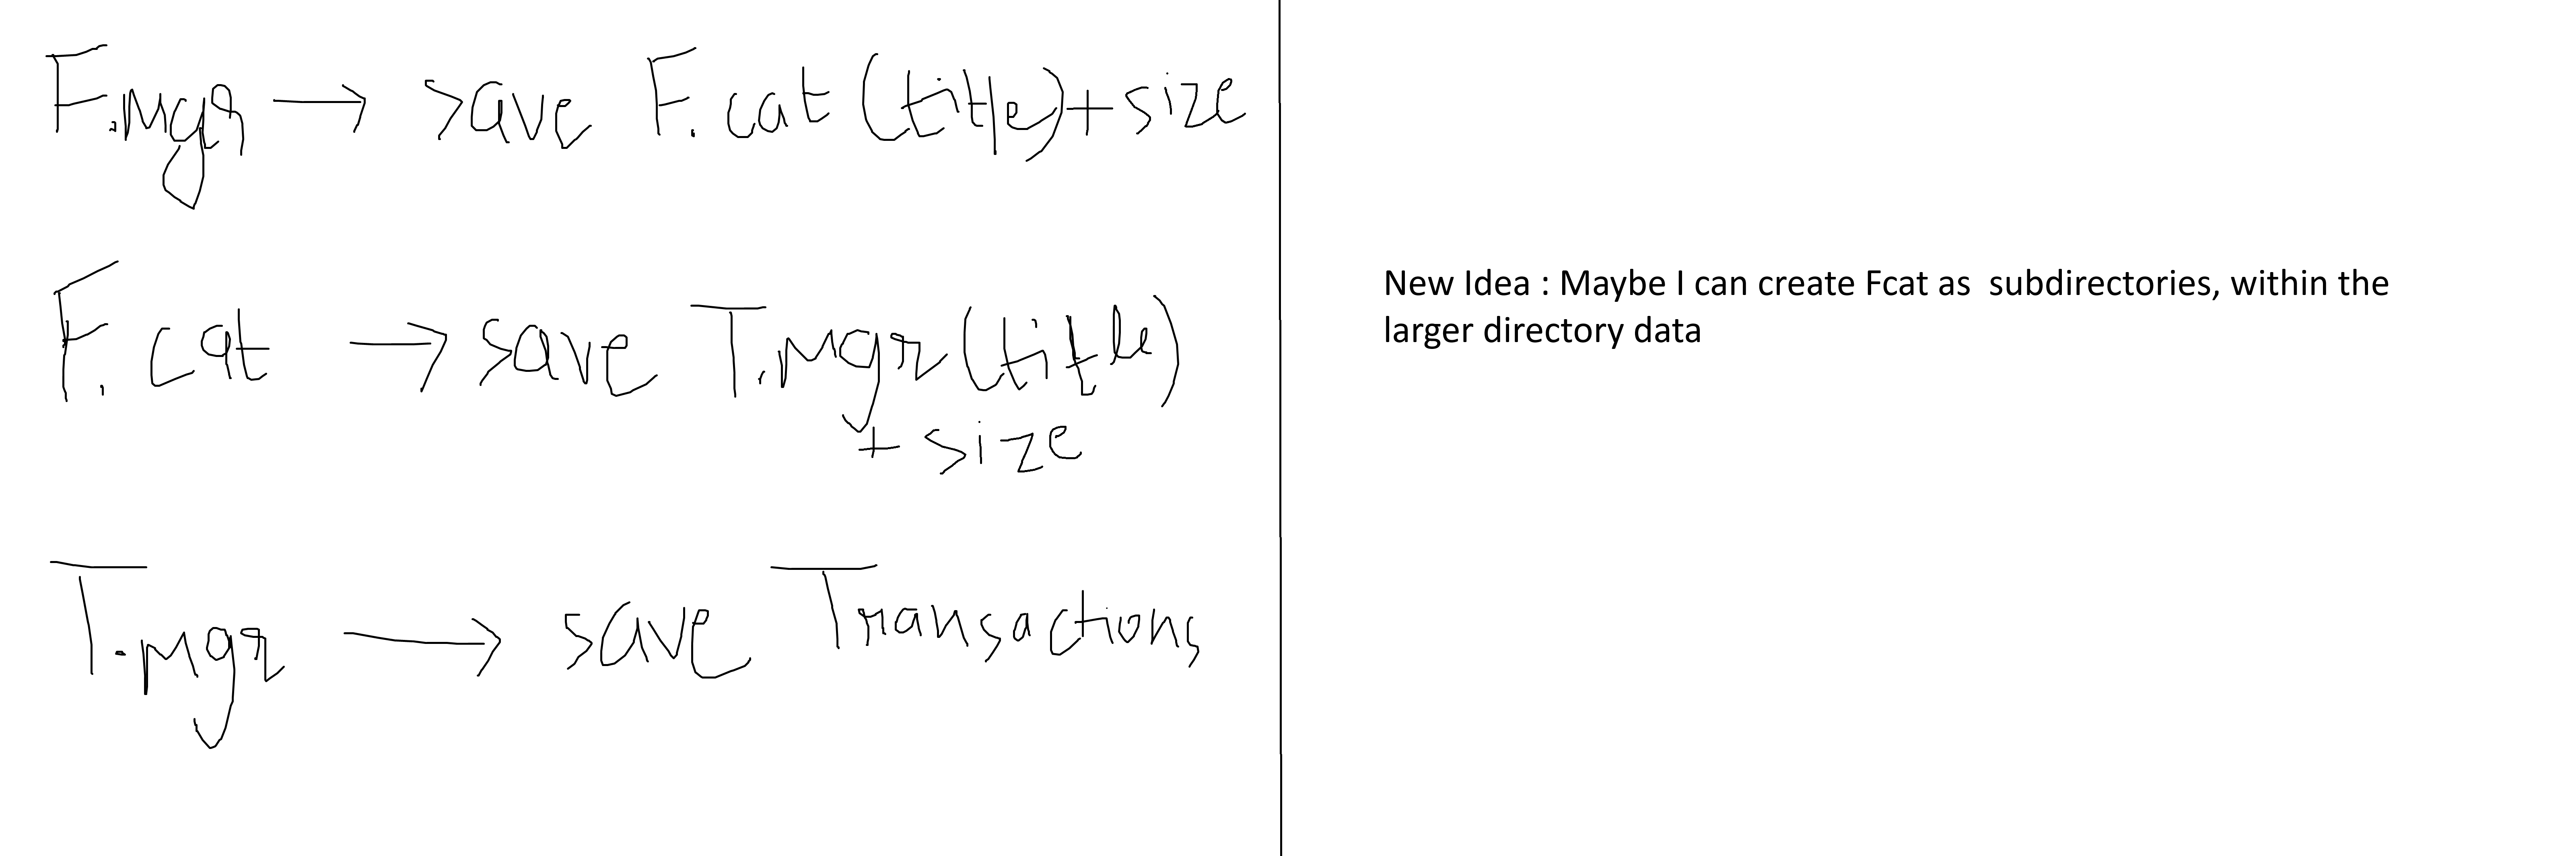 F.mgr → save F.cat (title)+size
F.cat → save T.mgr (title)
+ size
T.mgr → save Transactions
New Idea : Maybe I can create Fcat as  subdirectories, within the
larger directory data